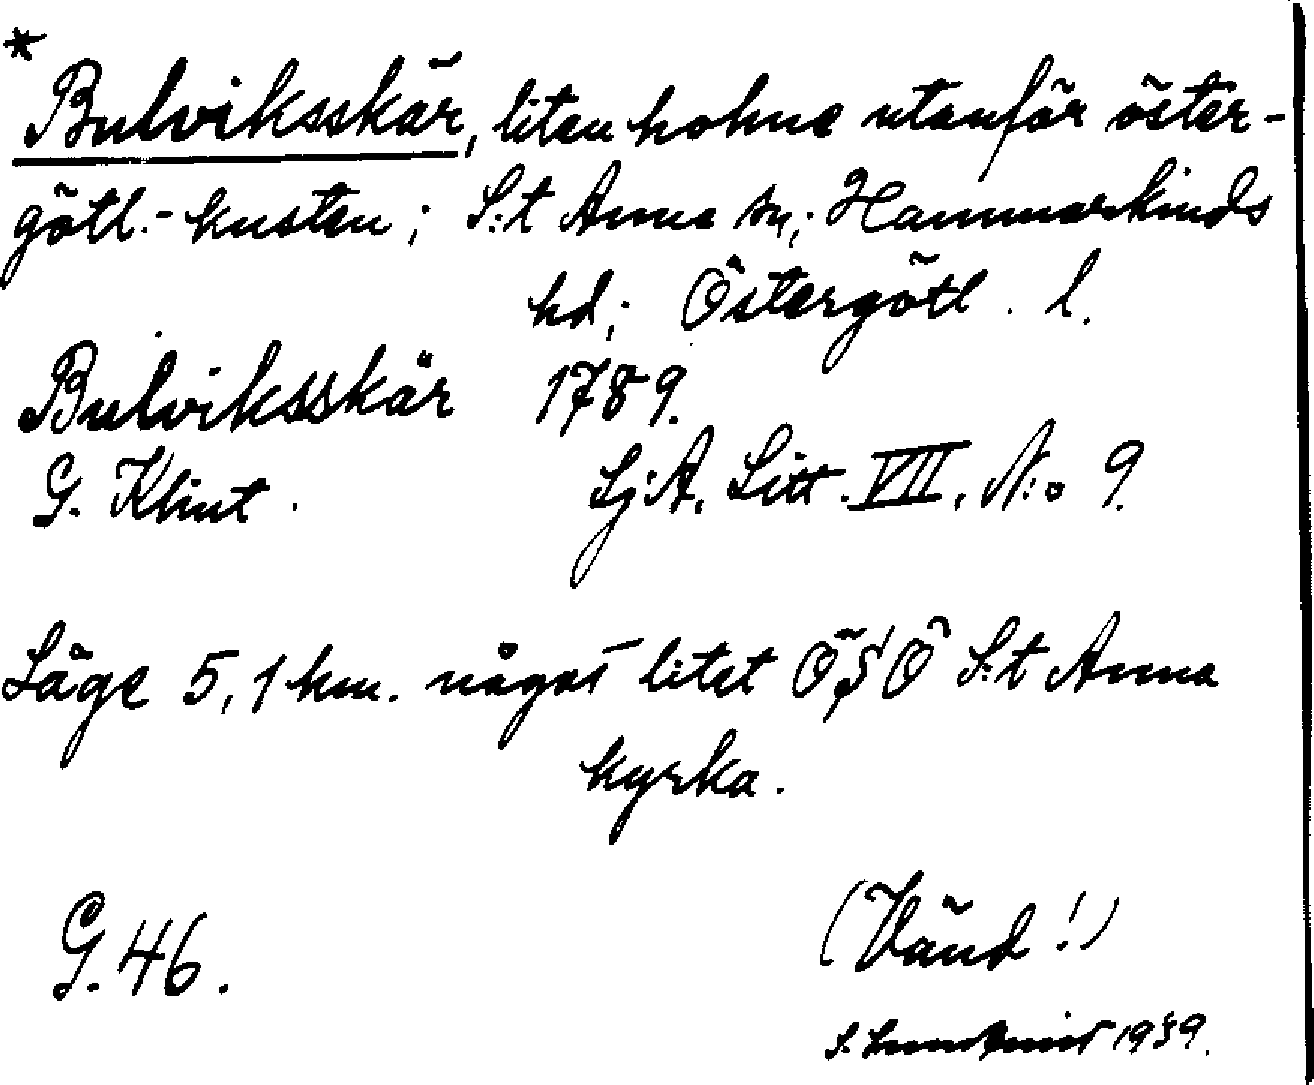 *
Bulviksskär, liten holme utanför öster-
götl.-kusten; S:t Anna sn; Hammarkinds
hd; Östergötl. l.
Bulviksskär 1789.
G. Klint. SjA. Litt. VII, N:o 9.
Läge 5,1 km. något litet ÖSÖ S:t Anna
kyrka.
G. 46.
(Vänd!)
S. 1939.